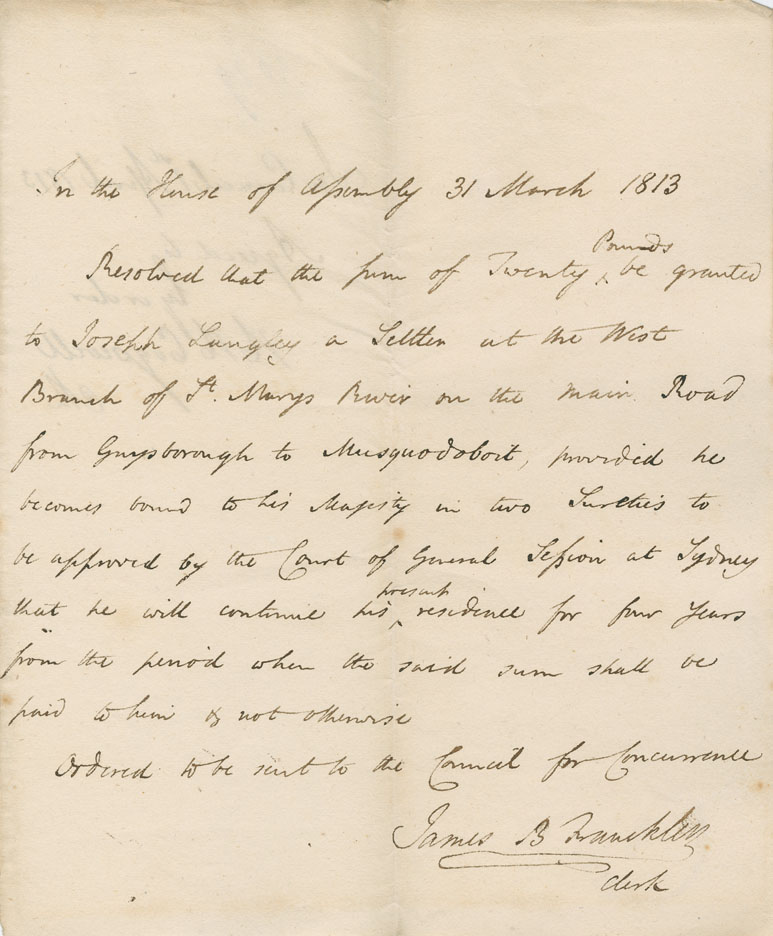 In the House of Assembly 31 March 1813
Resolved that the sum of Twenty Pounds be granted
to Joseph Langley a Settler at the West
Branch of St. Marys River on the main Road
from Guysborough to Musquodoboit, provided he
becomes bound to his Majesty in two Sureties to
be approved by the Court of General Session at Sydney
that he will continue his present residence for four Years
from the period when the said sum shall be
paid to him & not otherwise
Ordered to be sent to the Council for Concurrence
James B Franckling
Clerk